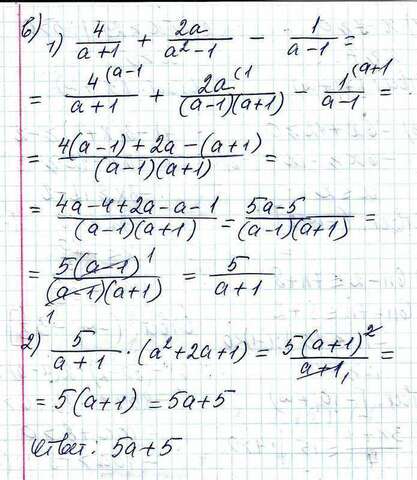 в)
1) 4/(a+1) + 2a/(a²-1) - 1/(a-1) =
= 4^(a-1/(a+1) + 2a^(1/((a-1)(a+1)) - 1^(a+1/(a-1) =
= (4(a-1)+2a-(a+1))/((a-1)(a+1)) =
= (4a-4+2a-a-1)/((a-1)(a+1)) = (5a-5)/((a-1)(a+1)) =
= (5(a-1) 1)/(1 (a-1)(a+1)) = 5/(a+1)
2) 5/(a+1) · (a²+2a+1) = 5(a+1)²/(a+1, =
= 5(a+1) = 5a+5
Ответ: 5a+5